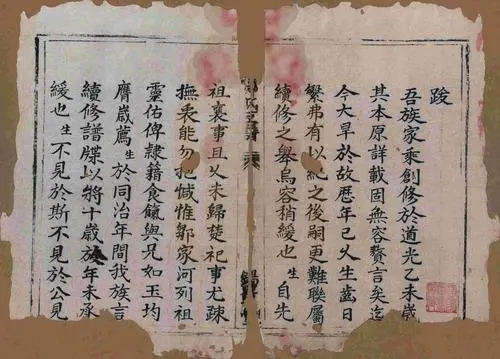 跋
吾族家乘創修於道光乙未歲
其本原詳載固無容贅言矣迄
今大旱於故歷年已久生齒日
繁弗有以紀之後嗣更難聯屬
續修之舉烏容稍緩也生自先
祖襄事且久未歸楚祀事尤疎
撫衷能勿抱慽惟鄒家河列祖
靈佑俾隸籍食餼與兄如玉均
膺歲薦生於同治年間我族言
續修譜牒以將十歲族年未承
緩也生不見於斯不見於公見